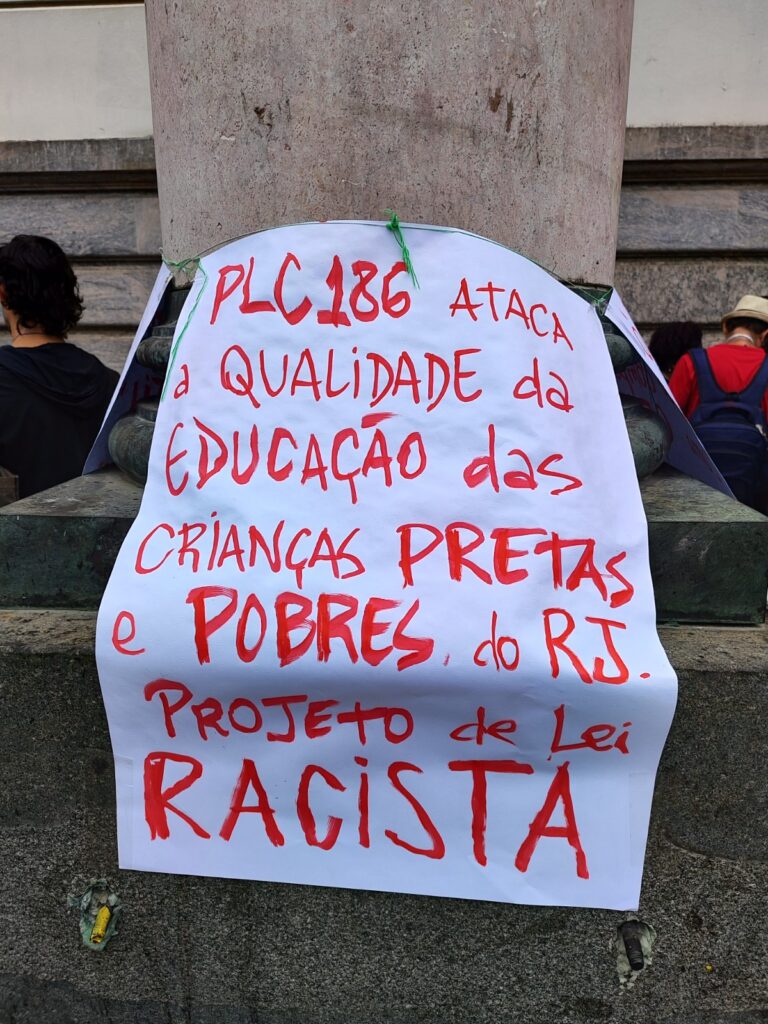 PLC 186 ATACA
a QUALIDADE da
EDUCAÇÃO das
CRIANÇAS PRETAS
e POBRES do RJ.
PROJETO de Lei
RACISTA